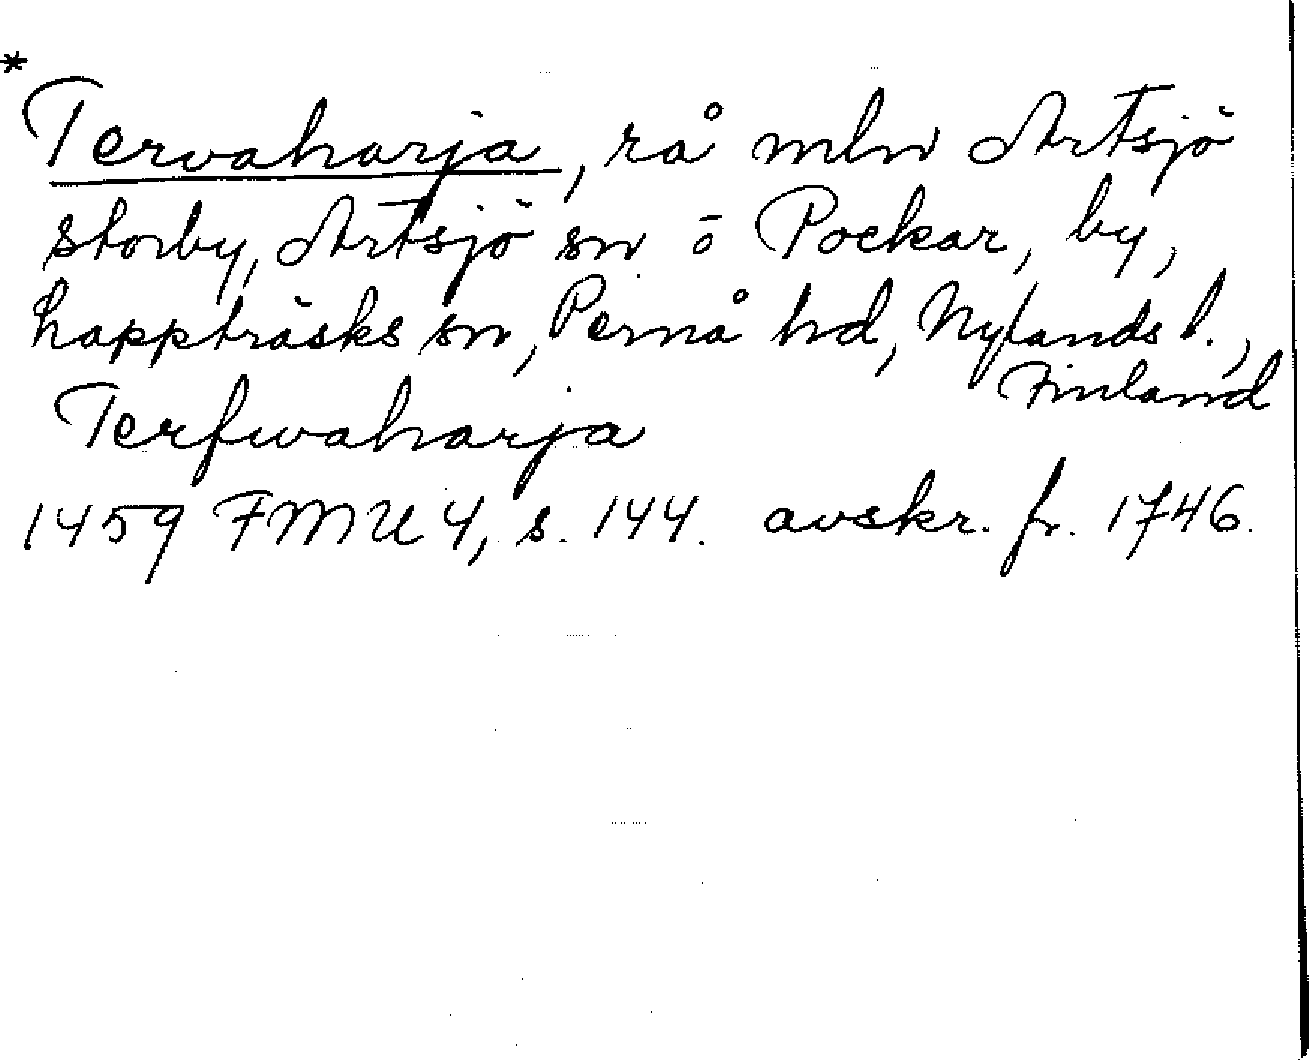 *
Tervaharja, rå mln Artsjö
storby, Artsjö sn o Pockar, by,
Lappträsks sn, Pernå hd, Nylands l.,
Finland
Terfwaharja
1459 FMU 4, s. 144. avskr. fr. 1746.